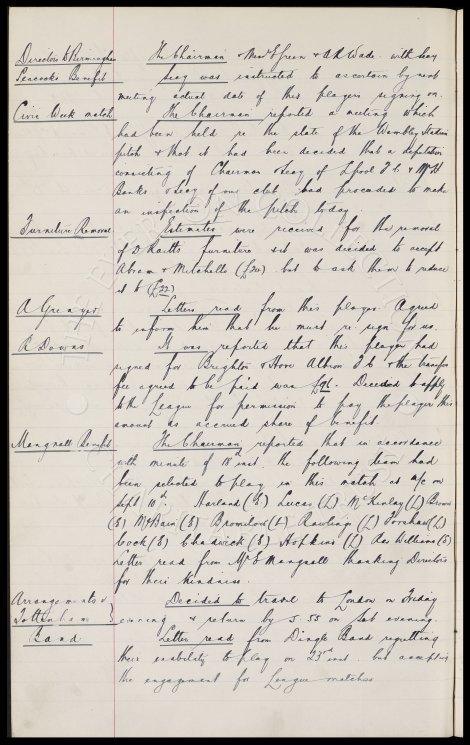 Directors to Birmingham The Chairman & Messrs Green & A R Wade with Secy
Peacocks Benefit Secy was instructed to ascertain by next
meeting actual date of this players signing on.
Civic Week match The Chairman reported a meeting which
had been held re the state of the Wembley Stadium
pitch & that it had been decided that a deputation
consisting of Chairman & Secy of Lpool F C & Mr H
Banks & Secy of our club had proceeded to make
an inspection of the pitch today.
Furniture Removal Estimates were received for the removal
of D Raitts furniture & it was decided to accept
Abram & Mitchells (£20) but to ask them to reduce
it to (£22)
A Grenyer Letters read from this player. Agreed
to inform him that he must re-sign for us.
R Downs It was reported that this player had
signed for Brighton & Hove Albion F C & the transfer
fee agreed to be paid was Decided to apply
to the League for permission to pay the player this
amount as accrued share of benefit
Mangnall Benefit The Chairman reported that in accordance
with minute of 18th inst. the following team had
been selected to play in this match at
Sept 10th. Harland (E) Lucas (L) McKinlay (L) Brown
(E) McBain (E) Bromilow (L) Rawlings (L) Forshaw (L)
Cock (E) Chadwick (E) Hopkins (L) Res Williams (E)
Letter read from Mr E Mangnall thanking Directors
for their kindness.
Arrangements v Decided to travel to London on Friday
Tottenham evening & return by 5.55 on Sat evening.
Band Letter read from Dingle Band regretting
their inability to play on 23rd inst. but accepting
the engagement for League matches